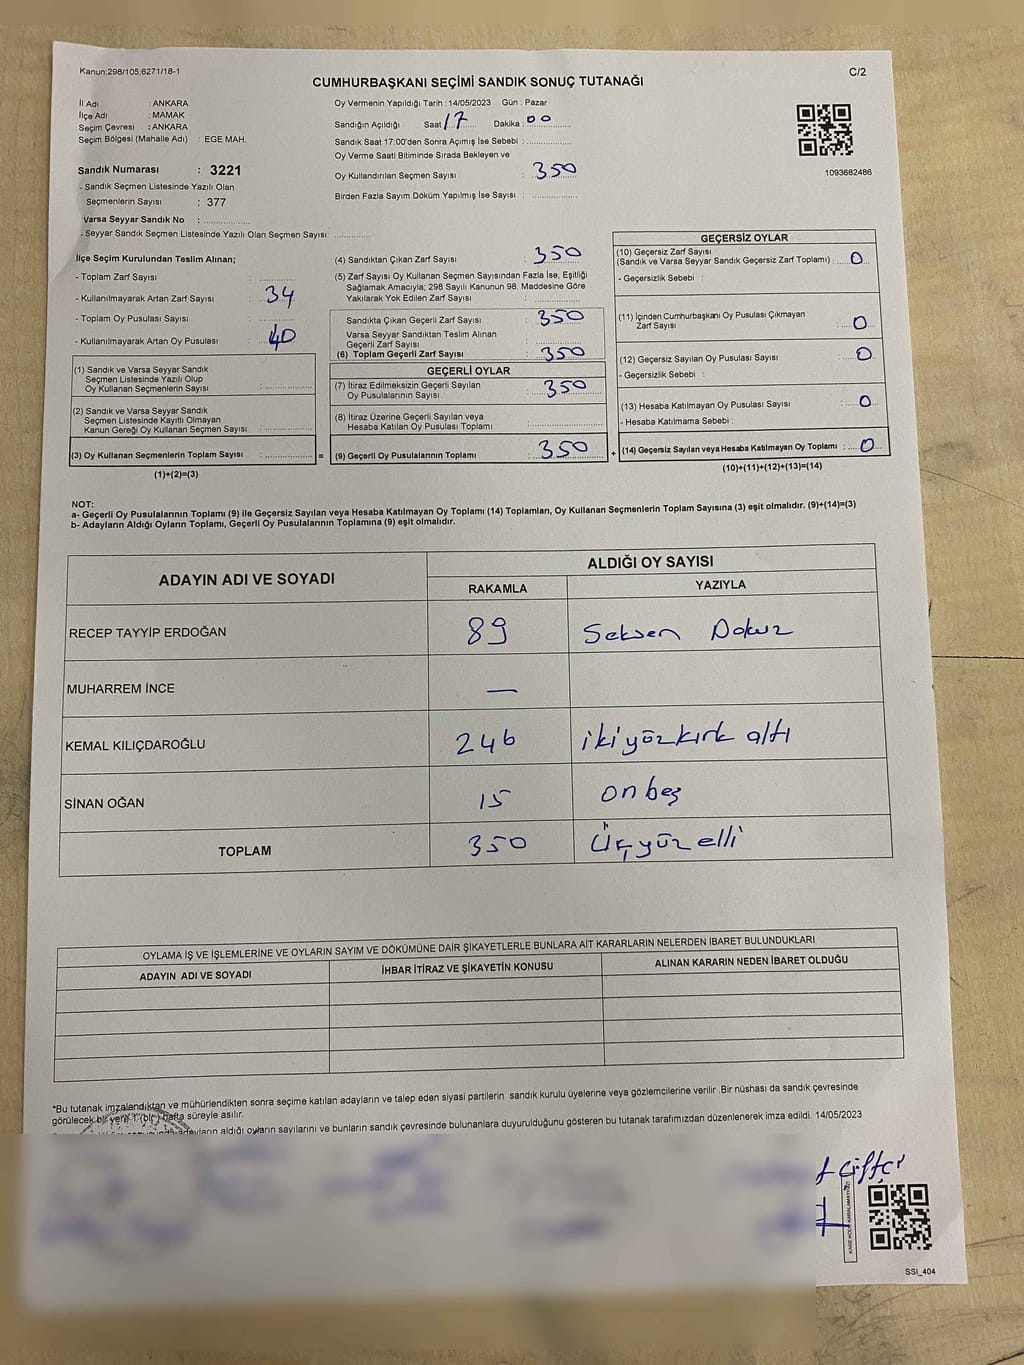 Kanun;298/105;6271/18-1
C/2
CUMHURBAŞKANI SEÇİMİ SANDIK SONUÇ TUTANAĞI
İl Adı : ANKARA
İlçe Adı : MAMAK
Seçim Çevresi : ANKARA
Seçim Bölgesi (Mahalle Adı) : EGE MAH.
Sandık Numarası : 3221
- Sandık Seçmen Listesinde Yazılı Olan
Seçmenlerin Sayısı : 377
Varsa Seyyar Sandık No :
- Seyyar Sandık Seçmen Listesinde Yazılı Olan Seçmen Sayısı:
Oy Vermenin Yapıldığı Tarih : 14/05/2023 Gün : Pazar
Sandığın Açıldığı Saat 17 Dakika 00
Sandık Saat 17:00'den Sonra Açımış İse Sebebi :
Oy Verme Saati Bitiminde Sırada Bekleyen ve
Oy Kullandırılan Seçmen Sayısı : 350
Birden Fazla Sayım Döküm Yapılmış İse Sayısı :
1093682486
İlçe Seçim Kurulundan Teslim Alınan;
- Toplam Zarf Sayısı :
- Kullanılmayarak Artan Zarf Sayısı : 34
- Toplam Oy Pusulası Sayısı :
- Kullanılmayarak Artan Oy Pusulası : 40
(1) Sandık ve Varsa Seyyar Sandık
Seçmen Listesinde Yazılı Olup
Oy Kullanan Seçmenlerin Sayısı :
(2) Sandık ve Varsa Seyyar Sandık
Seçmen Listesinde Kayıtlı Olmayan
Kanun Gereği Oy Kullanan Seçmen Sayısı :
(3) Oy Kullanan Seçmenlerin Toplam Sayısı : =
(1)+(2)=(3)
(4) Sandıktan Çıkan Zarf Sayısı : 350
(5) Zarf Sayısı Oy Kullanan Seçmen Sayısından Fazla İse, Eşitliği
Sağlamak Amacıyla; 298 Sayılı Kanunun 98. Maddesine Göre
Yakılarak Yok Edilen Zarf Sayısı :
Sandıkta Çıkan Geçerli Zarf Sayısı : 350
Varsa Seyyar Sandıktan Teslim Alınan
Geçerli Zarf Sayısı :
(6) Toplam Geçerli Zarf Sayısı : 350
GEÇERLİ OYLAR
(7) İtiraz Edilmeksizin Geçerli Sayılan
Oy Pusulalarının Sayısı : 350
(8) İtiraz Üzerine Geçerli Sayılan veya
Hesaba Katılan Oy Pusulası Toplamı :
(9) Geçerli Oy Pusulalarının Toplamı : 350 +
GEÇERSİZ OYLAR
(10) Geçersiz Zarf Sayısı
(Sandık ve Varsa Seyyar Sandık Geçersiz Zarf Toplamı) : 0
- Geçersizlik Sebebi :
(11) İçinden Cumhurbaşkanı Oy Pusulası Çıkmayan
Zarf Sayısı : 0
(12) Geçersiz Sayılan Oy Pusulası Sayısı : 0
- Geçersizlik Sebebi :
(13) Hesaba Katılmayan Oy Pusulası Sayısı : 0
- Hesaba Katılmama Sebebi :
(14) Geçersiz Sayılan veya Hesaba Katılmayan Oy Toplamı : 0
(10)+(11)+(12)+(13)=(14)
NOT:
a- Geçerli Oy Pusulalarının Toplamı (9) ile Geçersiz Sayılan veya Hesaba Katılmayan Oy Toplamı (14) Toplamları, Oy Kullanan Seçmenlerin Toplam Sayısına (3) eşit olmalıdır. (9)+(14)=(3)
b- Adayların Aldığı Oyların Toplamı, Geçerli Oy Pusulalarının Toplamına (9) eşit olmalıdır.
ADAYIN ADI VE SOYADI ALDIĞI OY SAYISI
RAKAMLA YAZIYLA
RECEP TAYYİP ERDOĞAN 89 Seksen Dokuz
MUHARREM İNCE —
KEMAL KILIÇDAROĞLU 246 ikiyüzkırk altı
SİNAN OĞAN 15 onbeş
TOPLAM 350 Üçyüz elli
OYLAMA İŞ VE İŞLEMLERİNE VE OYLARIN SAYIM VE DÖKÜMÜNE DAİR ŞİKAYETLERLE BUNLARA AİT KARARLARIN NELERDEN İBARET BULUNDUKLARI
ADAYIN ADI VE SOYADI İHBAR İTİRAZ VE ŞİKAYETİN KONUSU ALINAN KARARIN NEDEN İBARET OLDUĞU
*Bu tutanak imzalandıktan ve mühürlendikten sonra seçime katılan adayların ve talep eden siyasi partilerin sandık kurulu üyelerine veya gözlemcilerine verilir .Bir nüshası da sandık çevresinde
görülecek bir yere 1 (bir) hafta süreyle asılır.
aldığı oyların sayılarını ve bunların sandık çevresinde bulunanlara duyurulduğunu gösteren bu tutanak tarafımızdan düzenlenerek imza edildi. 14/05/2023
Çiftçi
SSİ_404